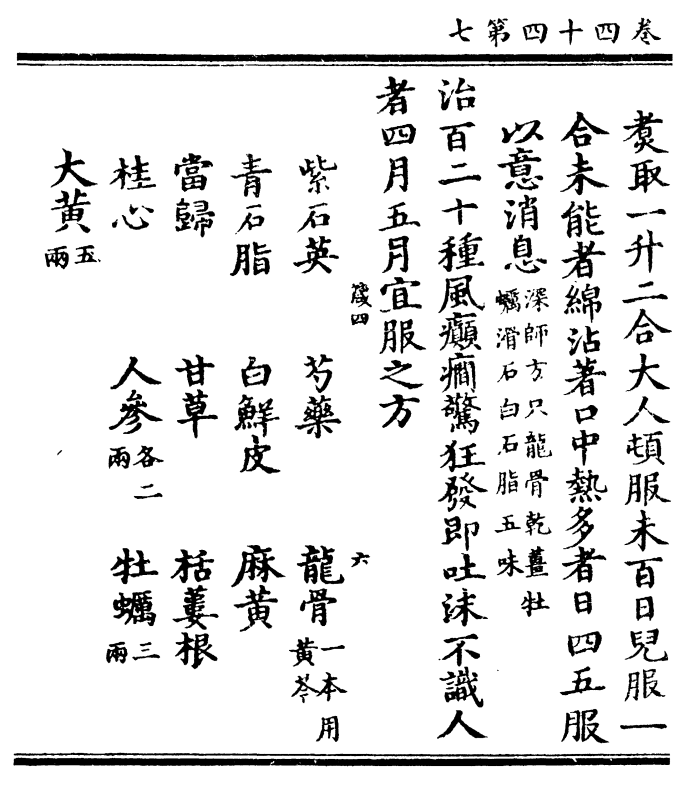 卷四十四第七
煑取一升二合大人頓服未百日兒服一
合未能者綿沾著口中熱多者日四五服
以意消息深師方只龍骨乾薑牡
蠣滑石白石脂五味
治百二十種風癲癇驚狂發即吐沫不識人
者四月五月宜服之方
箴四
六
紫石英 芍藥 龍骨一本用
黄芩
青石脂 白鮮皮 麻黄
當歸 甘草 栝蔞根
桂心 人參各二
兩 牡蠣三
兩
大黄五
兩